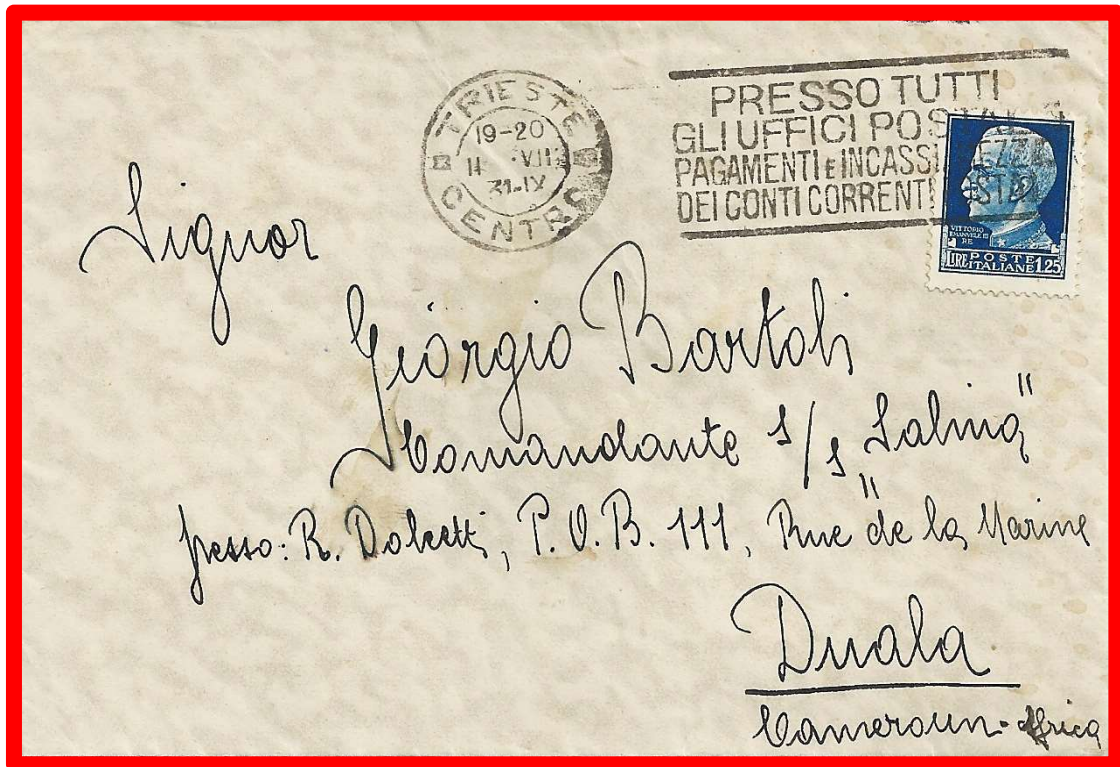 TRIESTE
19-20
11 VII
31-IX
CENTRO
PRESSO TUTTI
GLI UFFICI POSTALI
PAGAMENTI E INCASSI
DEI CONTI CORRENTI
VITTORIO
EMANVELE III
RE
LIRE POSTE ITALIANE 1,25
Signor
Giorgio Bartoli
Comandante s/s „Salina"
presso: R. Dolcetti, P.O.B. 111, Rue de la Marine
Duala
Cameroun-Africa